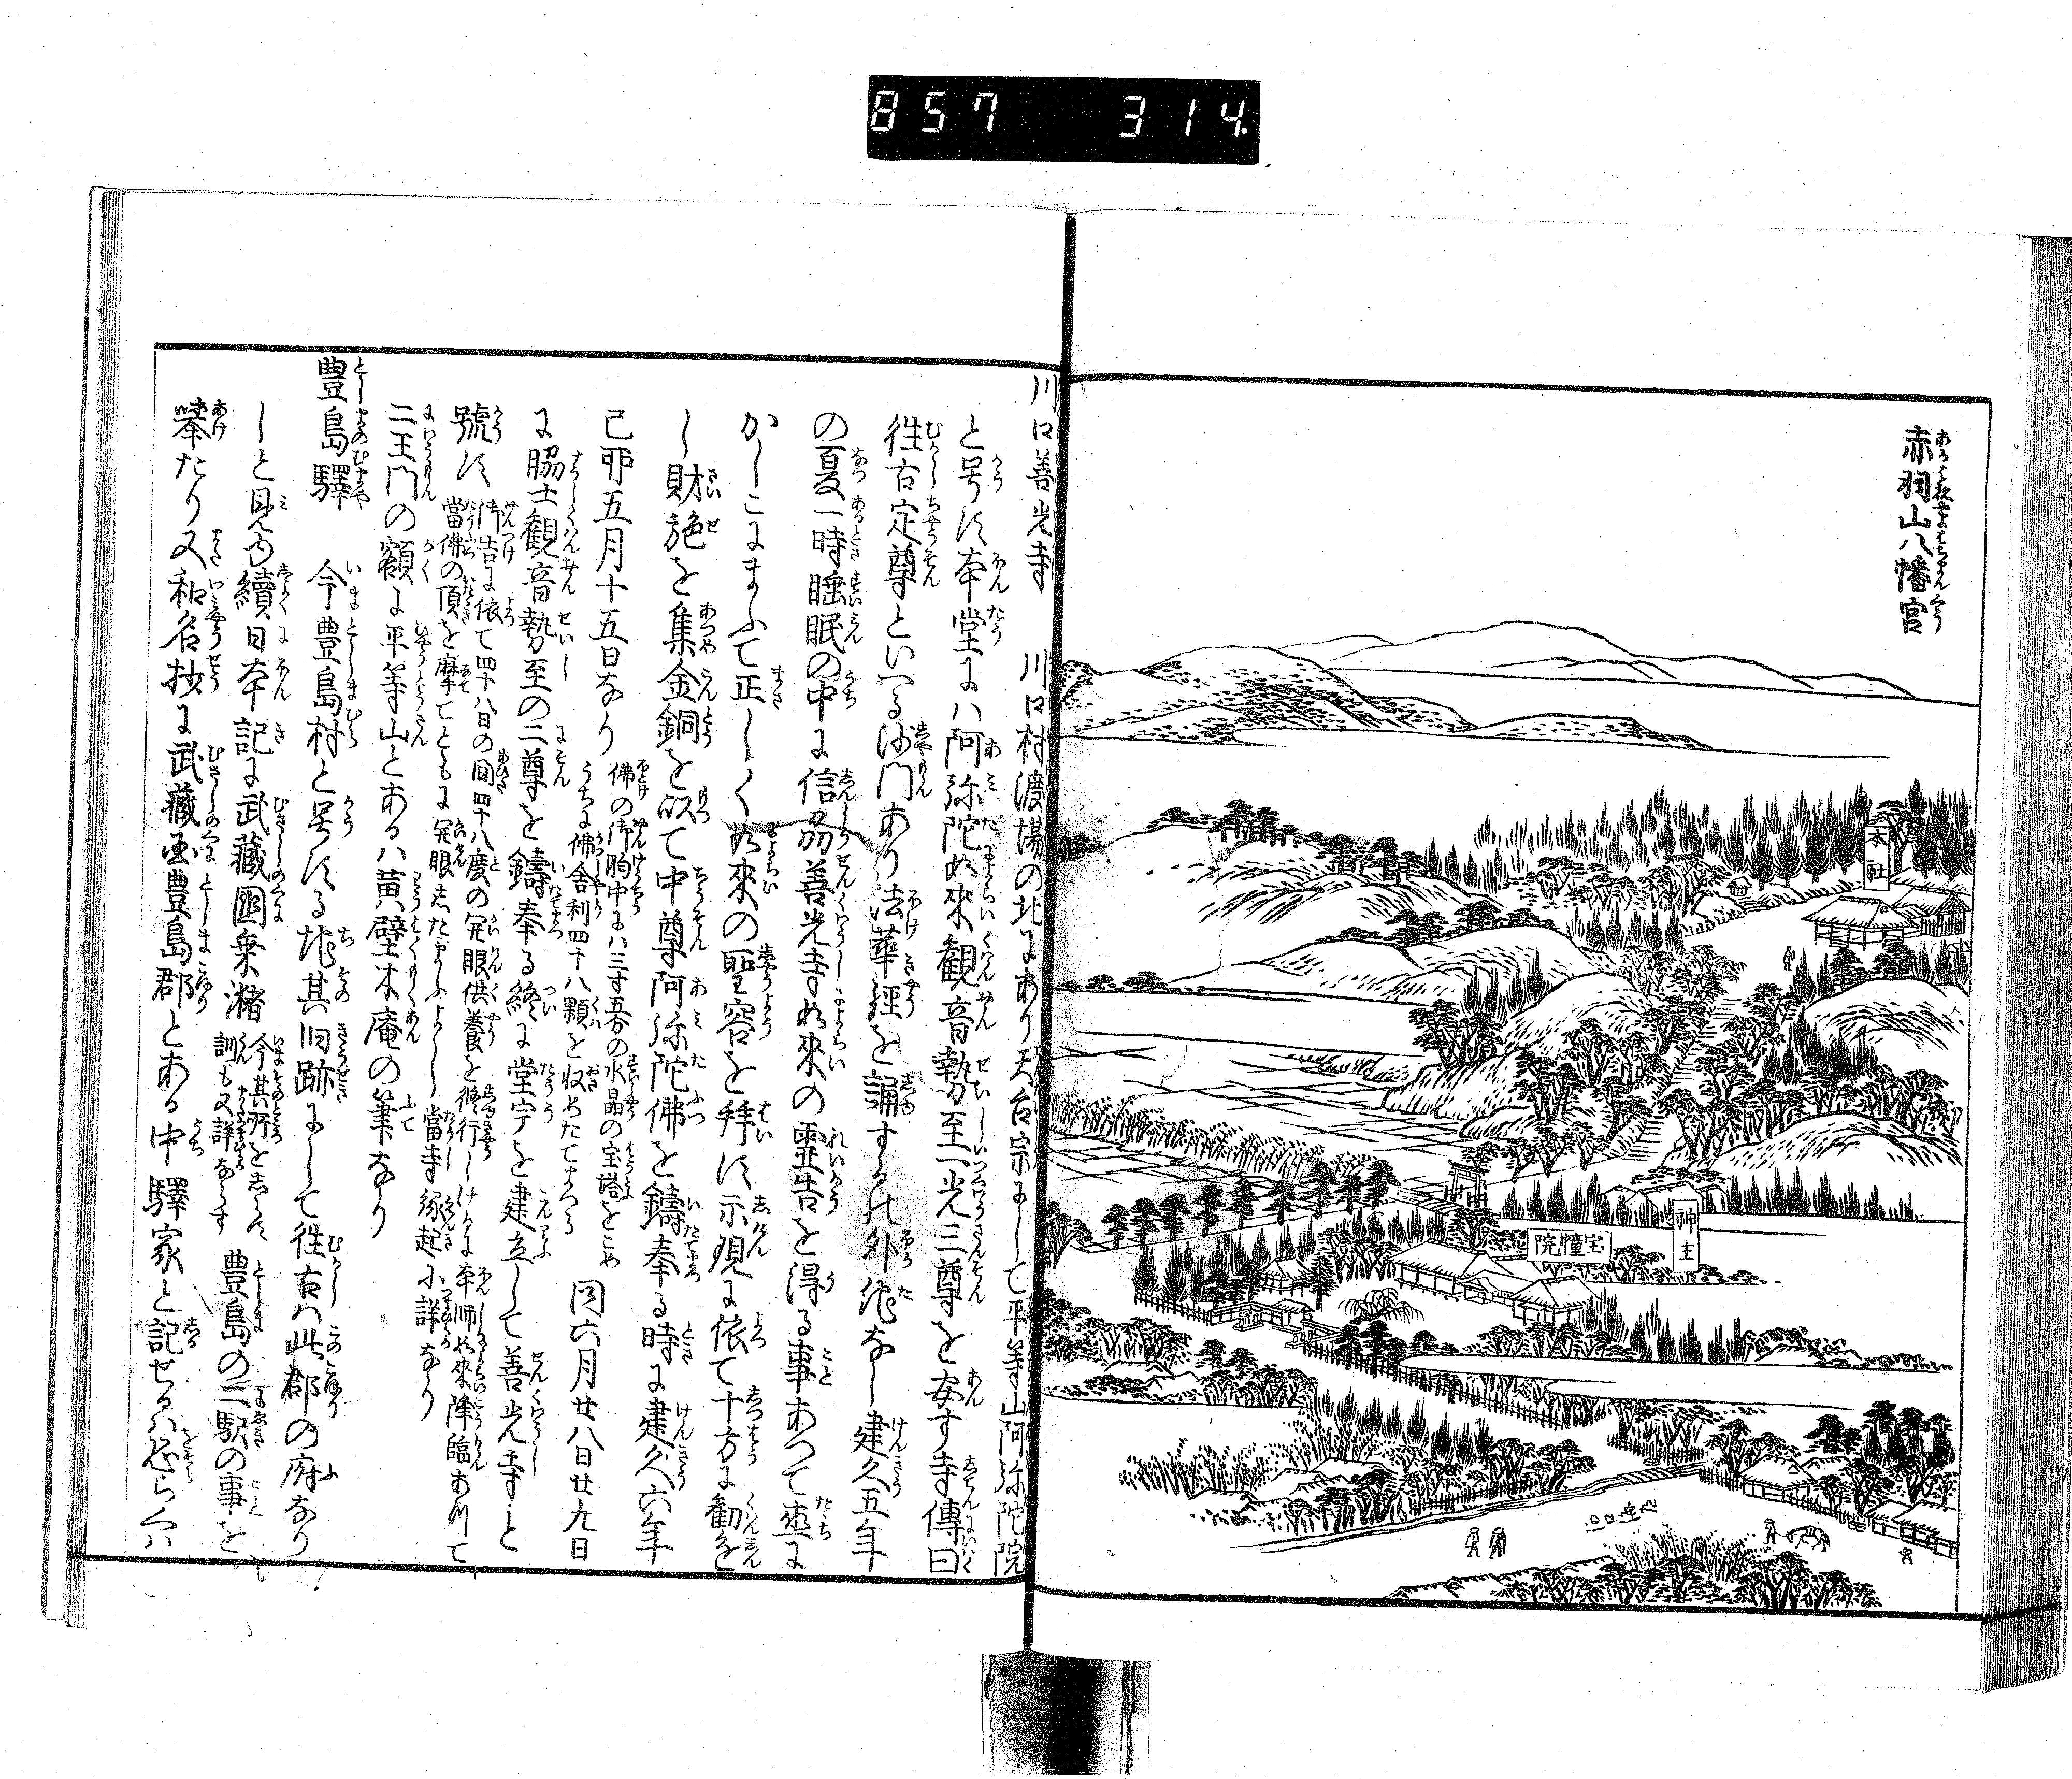 857 314.
赤羽山八幡宮
本社
神主
宝幢院
川口善光寺 川口村渡場の北にあり天台宗にして平等山阿弥陀院
と号す本堂には阿弥陀如來観音勢至一光三尊を安す寺傳曰
往古定尊といへる沙門あり法華経を誦するの外他なし建久五年
の夏一時睡眠の中に信州善光寺如來の霊告を得る事あつて直に
かしこにまふて正しく如來の聖容を拜す示現に依て十方に勧進
し財施を集金銅を以て中尊阿弥陀佛を鑄奉る時に建久六年
己卯五月十五日なり 佛の御胸中に八三寸五分の水晶の宝塔をこめ
うちに佛舎利四十八顆を収めたてまつる 同六月廿八日廿九日
に脇士観音勢至の二尊を鑄奉る終に堂宇を建立して善光寺と
號す 御告に依て四十八日の間四十八度の開眼供養を修行しけるに本師如來降臨ありて
當佛の頂を摩てともに開眼したまふよし當寺縁起に詳なり
二王門の額に平等山とあるハ黄檗木庵の筆なり
豊島驛 今豊島村と号する地其旧跡にして往古ハ此郡の府なり
しと見ゆ續日本記に武藏國乗潴 今其所をしらす
訓も又詳ならす 豊島の二駅の事を
擧たり又和名抄に武藏国豊島郡とある中驛家と記せるハ恐らくハ